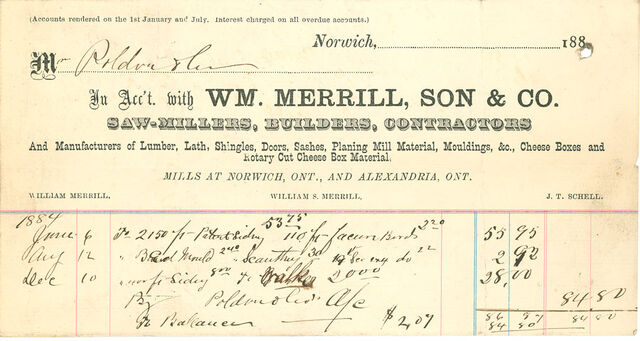 (Accounts rendered on the 1st January and July. Interest charged on all overdue accounts.)
Norwich, 188
Mr
In Acc't. with WM. MERRILL, SON & CO.
SAW-MILLERS, BUILDERS, CONTRACTORS
And Manufacturers of Lumber, Lath, Shingles, Doors, Sashes, Planing Mill Material, Mouldings, &c., Cheese Boxes and
Rotary Cut Cheese Box Material.
MILLS AT NORWICH, ONT., AND ALEXANDRIA, ONT.
WILLIAM MERRILL. WILLIAM S. MERRILL. J. T. SCHELL.
1884 53 75
June 6 To 2150 ft Siding 110 ft 2 20 55 95
Aug 12 " 2 92
Dec 10 " ft Siding 8 00 To 20 00 28,00
By a/c 84 80
To Balance $2,07 86 87 84 80
84 80